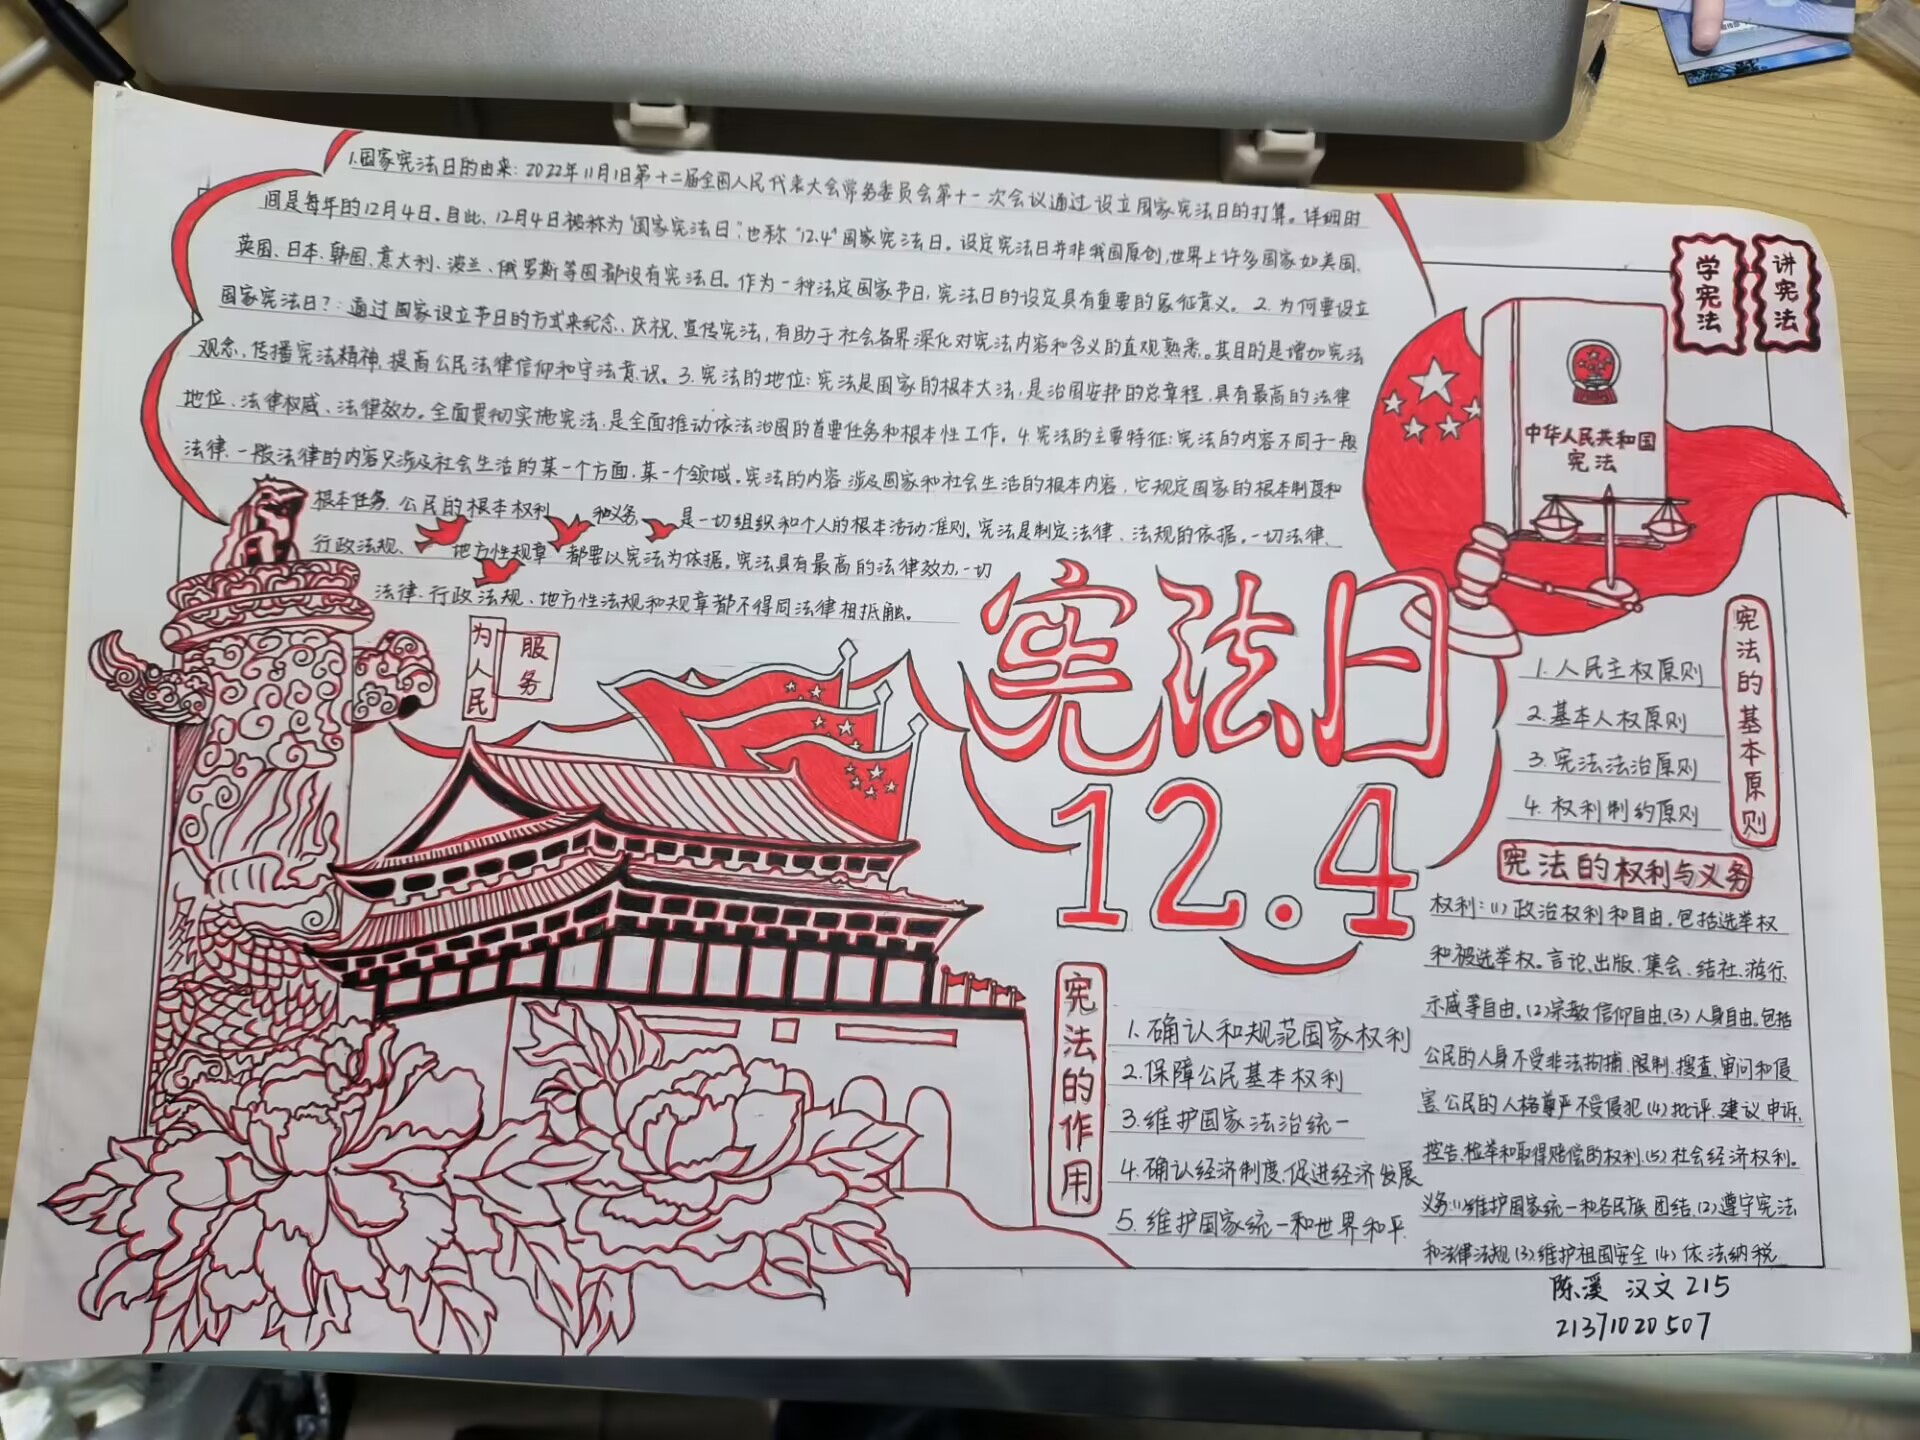 1.国家宪法日的由来：2022年11月1日第十二届全国人民代表大会常务委员会第十一次会议通过设立国家宪法日的打算。详细时
间是每年的12月4日。自此、12月4日被称为“国家宪法日”.也称“12.4”国家宪法日。设定宪法日并非我国原创,世界上许多国家如美国、
英国、日本、韩国、意大利、波兰、俄罗斯等国都设有宪法日。作为一种法定国家节日,宪法日的设定具有重要的象征意义。2.为何要设立
国家宪法日?：通过国家设立节日的方式来纪念、庆祝、宣传宪法,有助于社会各界深化对宪法内容和含义的直观熟悉。其目的是增加宪法
观念,传播宪法精神,提高公民法律信仰和守法意识。3.宪法的地位：宪法是国家的根本大法,是治国安邦的总章程,具有最高的法律
地位、法律权威、法律效力。全面贯彻实施宪法,是全面推动依法治国的首要任务和根本性工作。4.宪法的主要特征：宪法的内容不同于一般
法律、一般法律的内容只涉及社会生活的某一个方面、某一个领域。宪法的内容涉及国家和社会生活的根本内容,它规定国家的根本制度和
根本任务、公民的根本权利和义务,是一切组织和个人的根本活动准则。宪法是制定法律、法规的依据。一切法律、
行政法规、地方性规章都要以宪法为依据。宪法具有最高的法律效力,一切
法律、行政法规、地方性法规和规章都不得同法律相抵触。
为人民
服务
宪法日
12.4
学宪法
讲宪法
中华人民共和国
宪法
宪法的基本原则
1.人民主权原则
2.基本人权原则
3.宪法法治原则
4.权利制约原则
宪法的作用
1.确认和规范国家权利
2.保障公民基本权利
3.维护国家法治统一
4.确认经济制度、促进经济发展
5.维护国家统一和世界和平.
宪法的权利与义务
权利：(1)政治权利和自由,包括选举权
和被选举权。言论、出版、集会、结社、游行、
示威等自由。(2)宗教信仰自由.(3)人身自由。包括
公民的人身不受非法拘捕、限制、搜查、审问和侵
害、公民的人格尊严不受侵犯(4)批评、建议、申诉、
控告、检举和取得赔偿的权利.(5)社会经济权利。
义务:(1)维护国家统一和各民族团结.(2)遵守宪法
和法律法规(3)维护祖国安全(4)依法纳税
陈溪 汉文215
21371020507